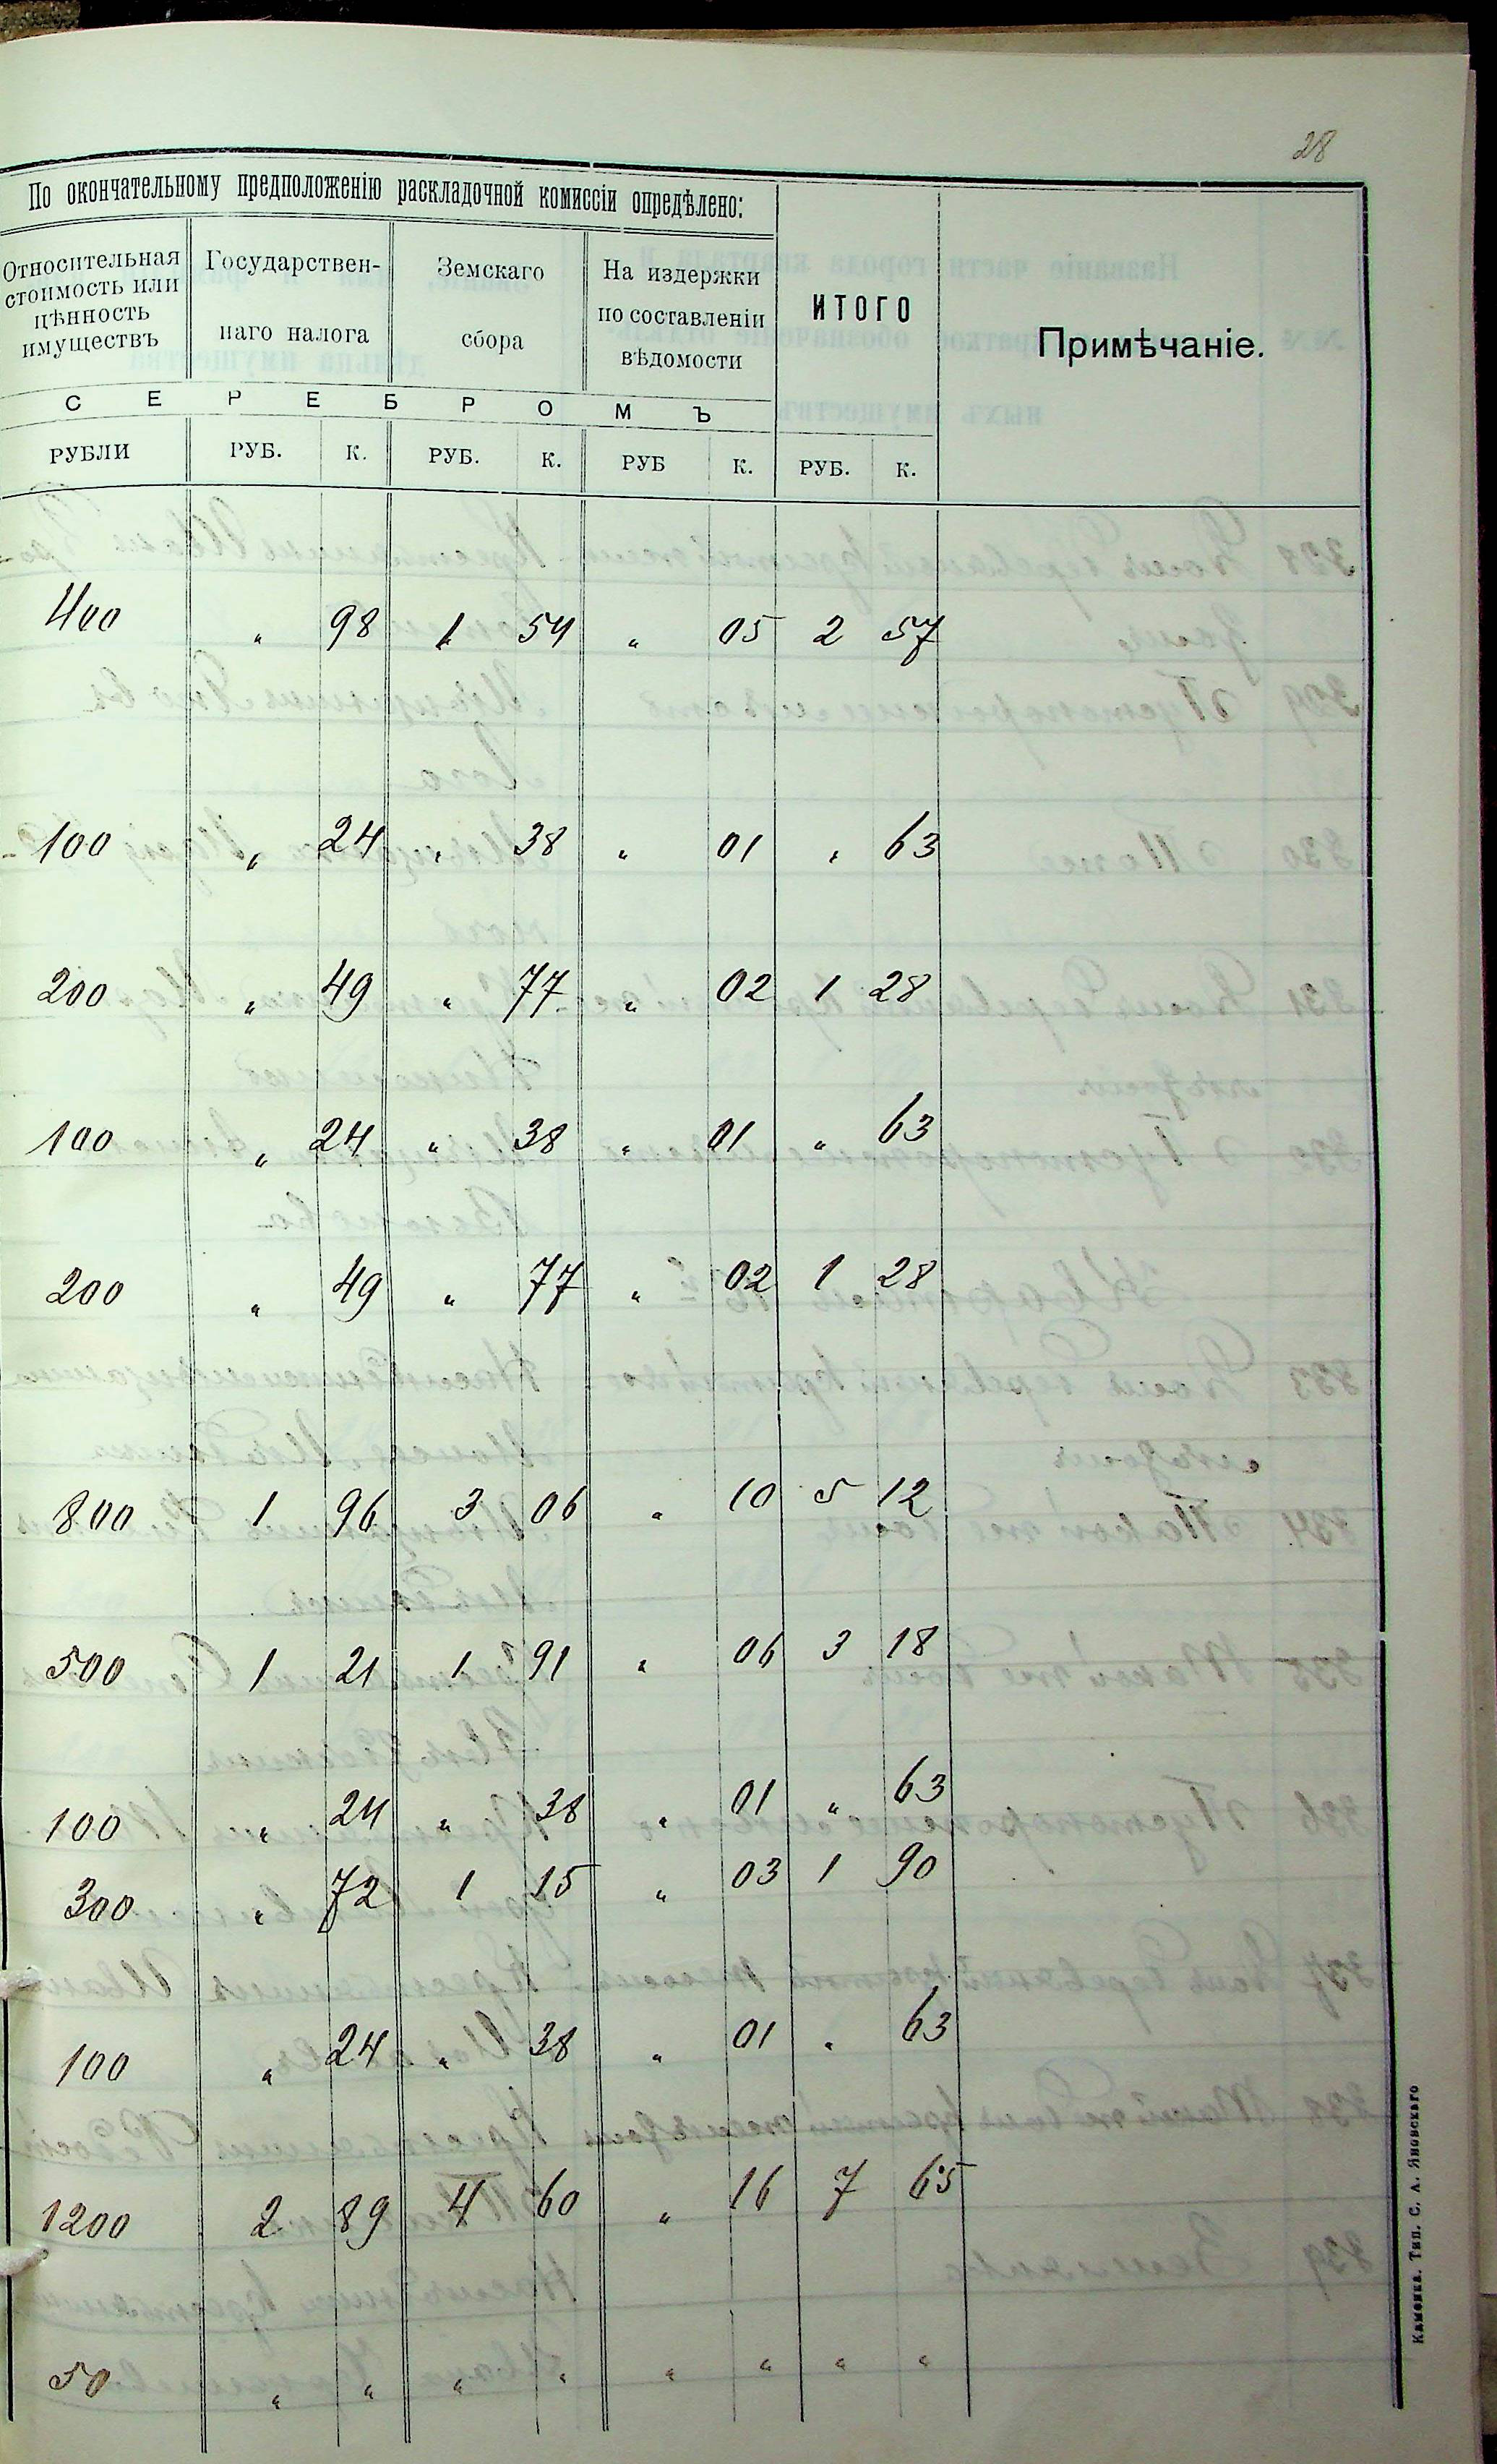 28
По окончательному предположенію раскладочной комиссіи опредѣлено:
Относительная стоимость или цѣнность имуществъ
Государственнаго налога
Земскаго сбора
На издержки по составленіи вѣдомости
ИТОГО
Примѣчаніе.
С Е Р Е Б Р О М Ъ
РУБЛИ РУБ. К. РУБ. К. РУБ К. РУБ. К.
400 " 98 1 54 " 05 2 57
100 " 24 " 38 " 01 " 63
200 " 49 " 77 " 02 1 28
100 " 24 " 38 " 01 " 63
200 " 49 " 77 " 02 1 28
800 1 96 3 06 " 10 5 12
500 1 21 1 91 " 06 3 18
100 " 24 " 38 " 01 " 63
300 " 72 1 15 " 03 1 90
100 " 24 " 38 " 01 " 63
1200 2 89 4 60 " 16 7 65
50 " " " " " " " "
Каменка. Тип. С. А. Яновскаго